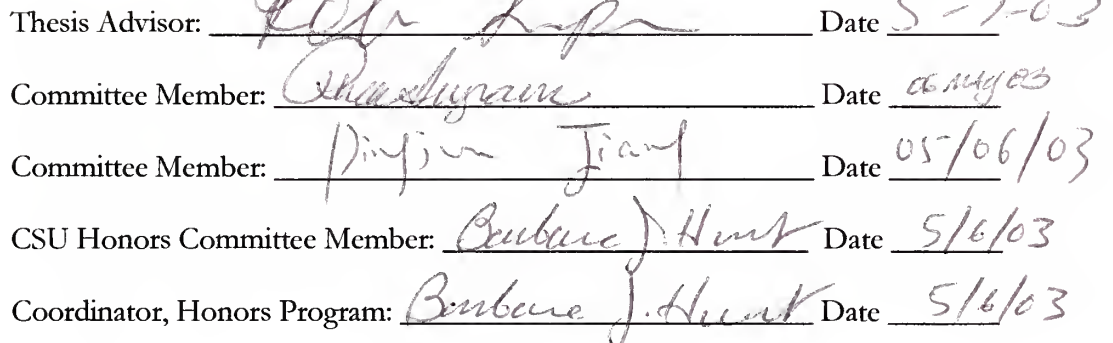 Thesis Advisor: Date
Committee Member: Date 06 May 03
Committee Member: Jiang Date 05/06/03
CSU Honors Committee Member: Barbara J. Hunt Date 5/6/03
Coordinator, Honors Program: Barbara J. Hunt Date 5/6/03